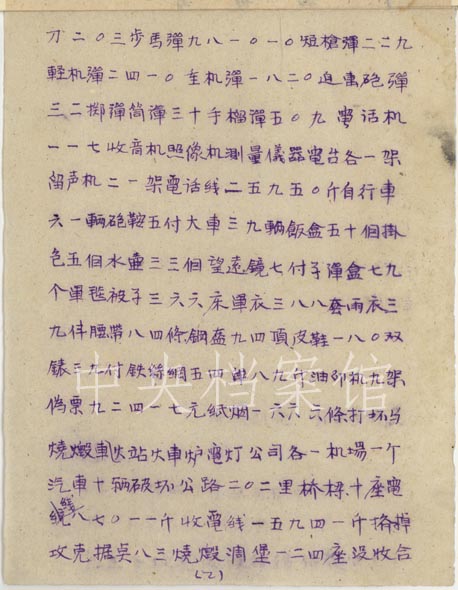 刀二〇三步馬彈九八一〇一〇短槍彈二二九
輕机彈二四一〇重机彈一八二〇迫击砲彈
三二擲彈筒彈三十手榴彈五〇九電话机
一一七收音机照像机測量儀器電台各一架
留声机二一架電话线二五九五〇斤自行車
六一輛砲鞍五付大車三九輛飯盒五十個掛
包五個水壶三三個望遠鏡七付子彈盒七九
个軍毯被子三六六床軍衣三八八套雨衣三
九件腰帶八四條鋼盔九四頂皮鞋一八〇双
錶三九付铁絲網五四 八九斤油印机九架
偽票九二四一七元紙烟一六六六條打坏与
燒燬車站火車炉電灯公司各一机場一个
汽車十輛破坏公路二〇二里桥樑十座電
綫八七〇一一斤收電线一五九四一斤擠掉
攻克据点八三燒燬凋堡一二四座没收合
(2)
中央档案馆